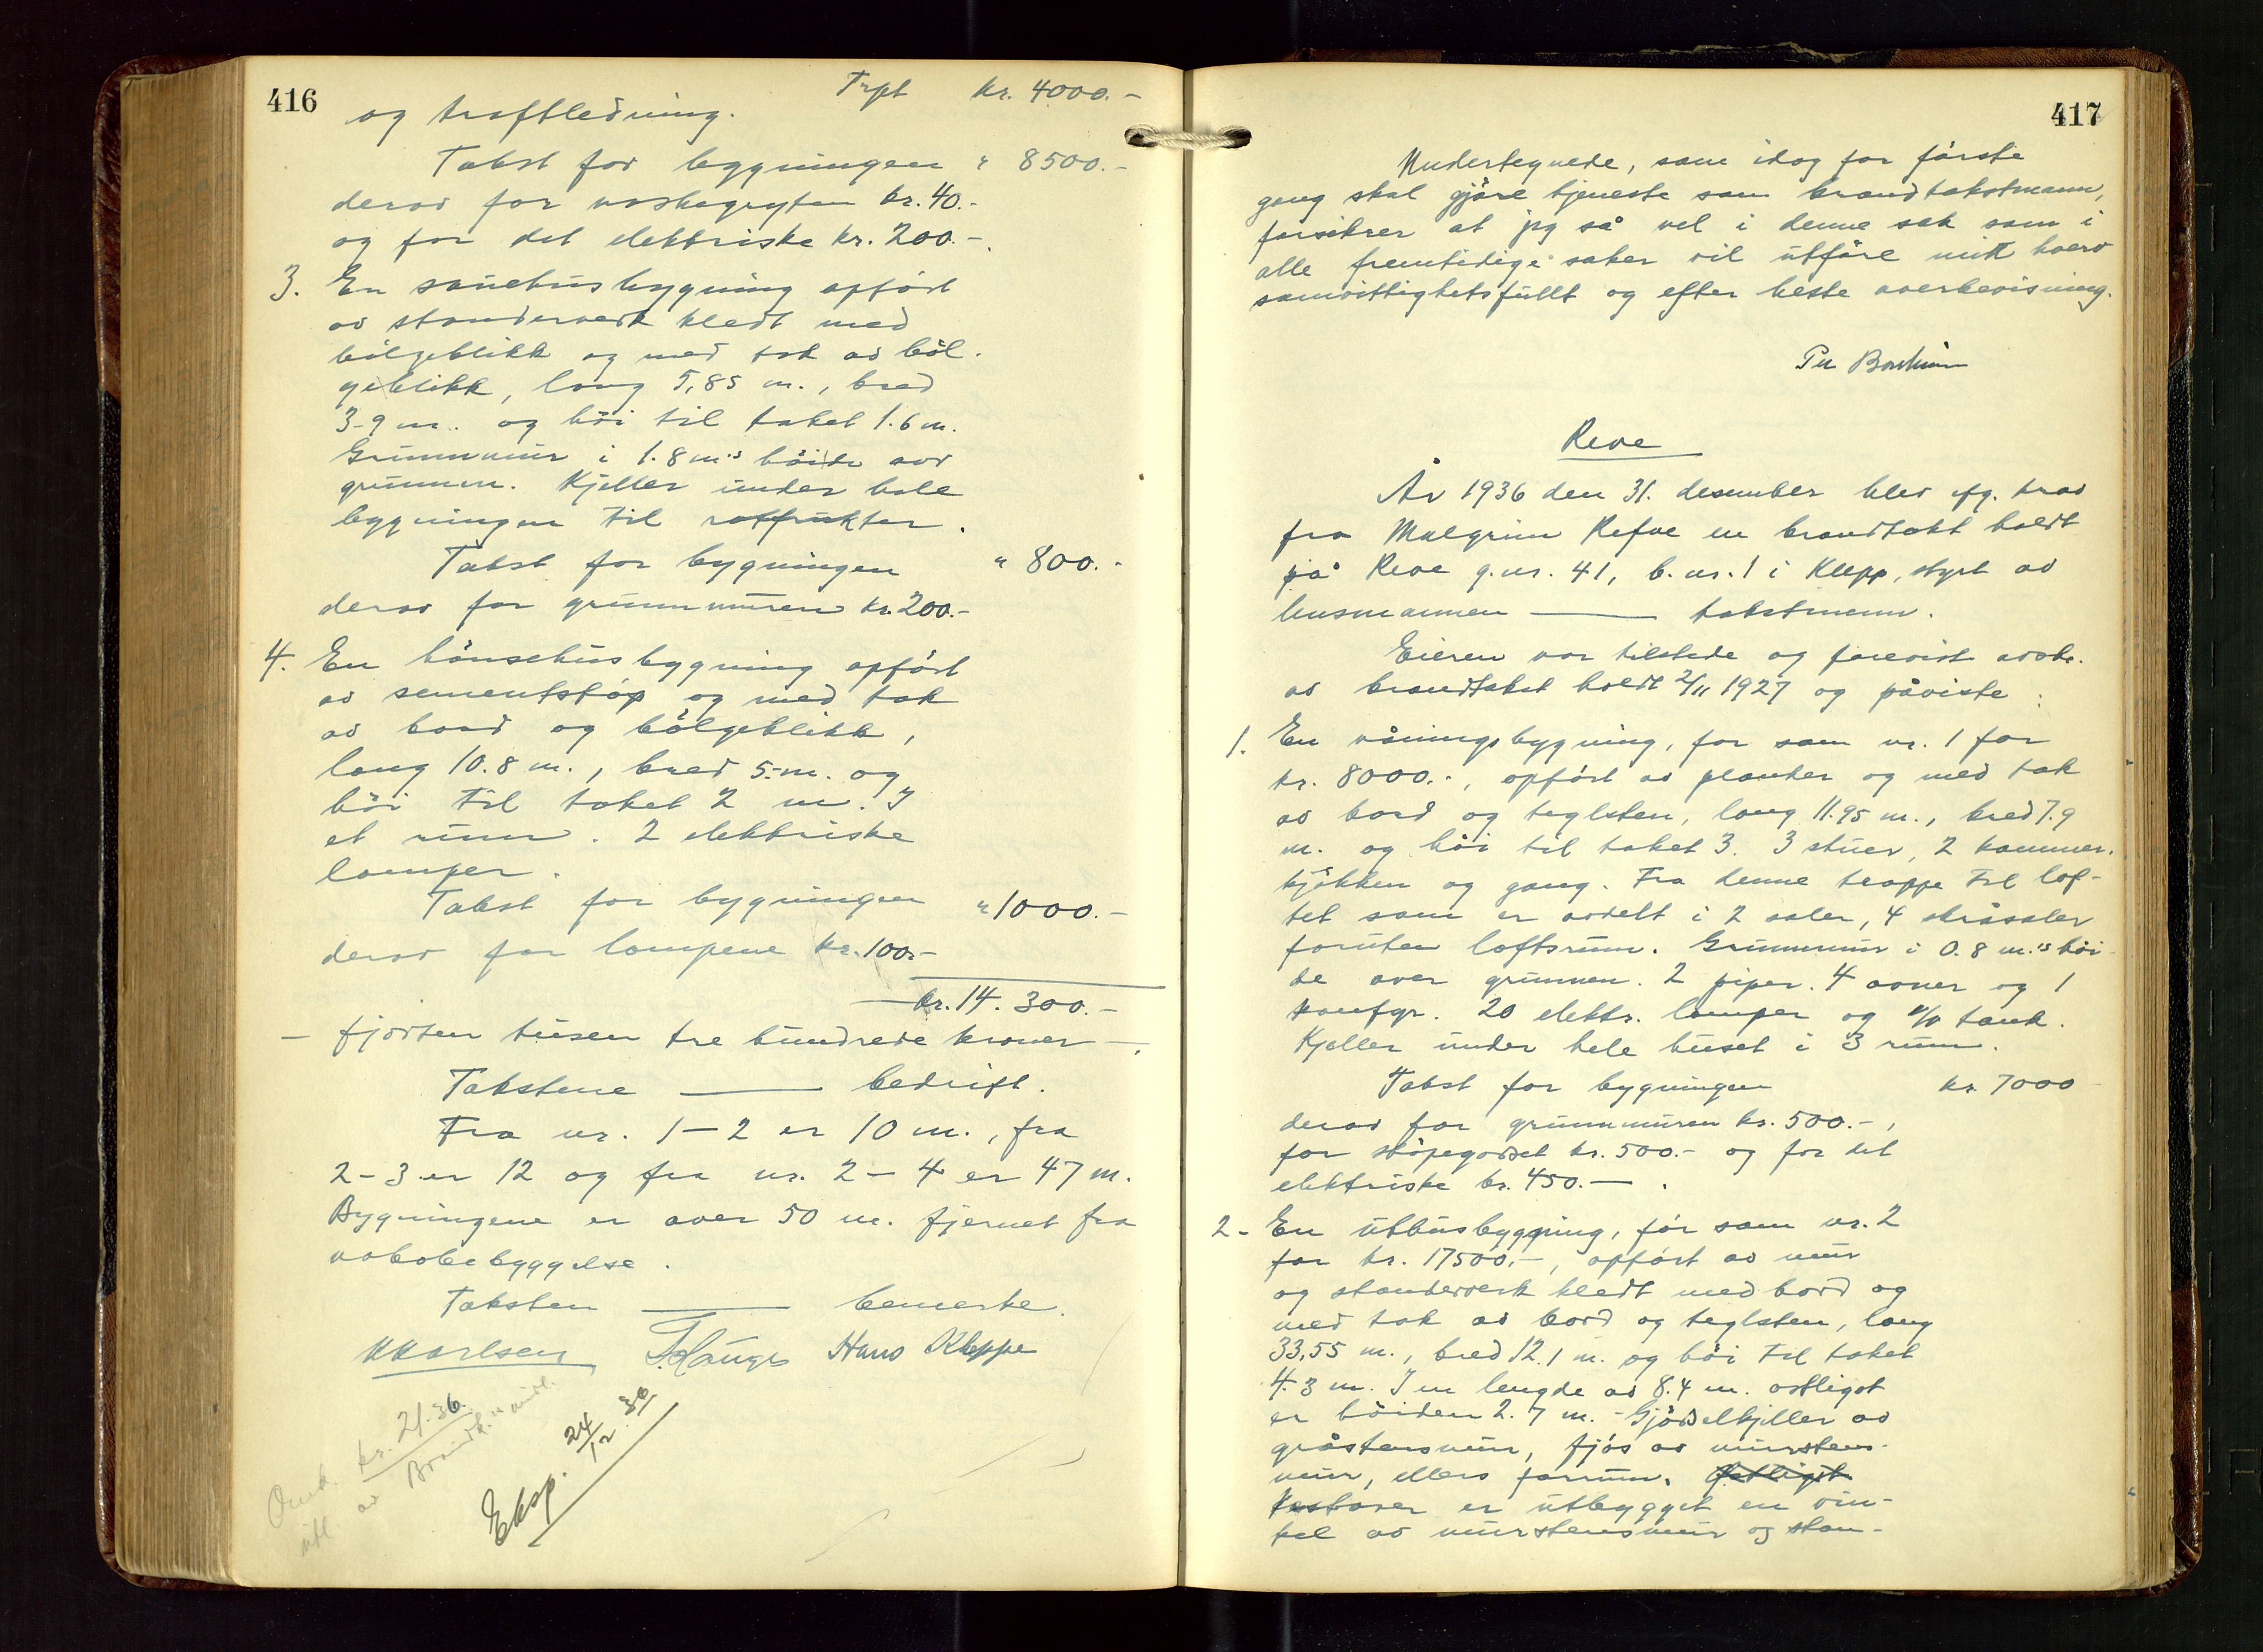 416
Trpt kr. 4000.-
og kraftledning.
Takst for bygningen " 8500.-
derav for vaskegryten kr. 40.-
og for det elektriske kr. 200.-.
3. En sauehusbygning opført
av standerverk kledt med
bølgeblikk og med tak av bøl-
geblikk, lang 5,85 m., bred
3.9 m. og høi til taket 1.6 m.
Grunnmur i 1.8 m.s høide over
grunnen. Kjeller under hele
bygningen til rotfrukter.
Takst for bygningen " 800.-
derav for grunnmuren kr. 200.-
4. En hønsehusbygning opført
av sementstøp og med tak
av bord og bølgeblikk,
lang 10.8 m., bred 5.- m. og
høi til taket 2 m. I
et rum. 2 elektriske
lamper.
Takst for bygningen " 1000.-
derav for lampene kr. 100.-
kr. 14.300.-
- fjorten tusen tre hundrede kroner -.
Takstene ——— bedrift.
Fra nr. 1-2 er 10 m., fra
2-3 er 12 og fra nr. 2-4 er 47 m.
Bygningene er over 50 m. fjernet fra
nabobebyggelse.
Taksten ——— bemerke.
KKarlsen T. Hauge Hans Kleppe
kr. 21.36.
av Brandk.
Eksp. 24/12 36
417
Undertegnede, som idag for første
gang skal gjøre tjeneste som brandtakstmann,
forsikrer at jeg så vel i denne sak som i
alle fremtidige saker vil utføre mitt hverv
samvittighetsfullt og efter beste overbevisning.
Reve
År 1936 den 31. desember blev efg. krav
fra Malgrim Refve en brandtakst holdt
på Reve g.nr. 41, b.nr. 1 i Klepp, styrt av
lensmannen ——— takstmenn.
Eieren var tilstede og forevist avskr.
av brandtakst holdt 2/11 1927 og påviste:
1. En våningsbygning, før som nr. 1 for
kr. 8000.-, opført av planker og med tak
av bord og teglsten, lang 11.95 m., bred 7.9
m. og høi til taket 3. 3 stuer, 2 kammer,
kjøkken og gang. Fra denne trappe til lof-
tet som er avdelt i 2 saler, 4 skråsaler
foruten loftsrum. Grunnmur i 0.8 m.s høi-
de over grunnen. 2 piper. 4 ovner og 1
komfyr. 20 elektr. lamper og el. tank.
Kjeller under hele huset i 3 rum.
Takst for bygningen kr. 7000
derav for grunnmuren kr. 500.-,
for støpegodset kr. 500.- og for det
elektriske kr. 450.-.
2- En uthusbygging, før som nr. 2
for kr. 17500.-, opført av mur
og standerverk kledt med bord og
med tak av bord og teglsten, lang
33,55 m., bred 12.1 m. og høi til taket
4.3 m. I en lengde av 8.4 m. østligst
er høiden 2.7 m. - Gjødselkjeller av
gråstensmur, fjøs av murstens-
mur, ellers forrum. Østligst
Vestover er utbygget en vin-
kel av murstensmur og stan-